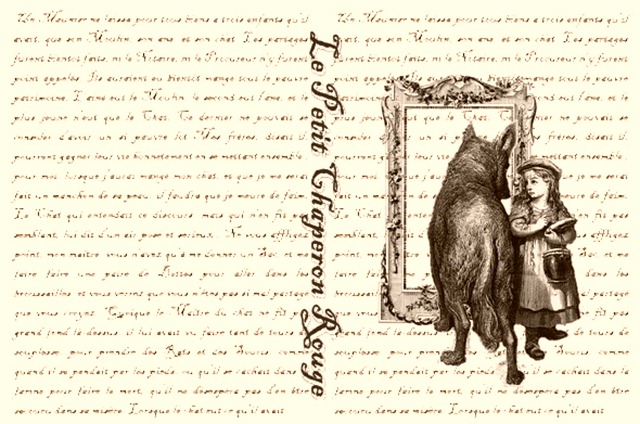 Un Meunier ne laissa pour tous biens a trois enfants qu'il
avait, que son Moulin, son ane et son chat. Les partages
furent bientot faits, ni le Notaire, ni le Procureur n'y furent
point appeles. Ils auraient eu bientot mange tout le pauvre
patrimoine. L'aine eut le Moulin, le second eut l'ane, et le
plus jeune n'eut que le Chat. Ce dernier ne pouvait se
consoler d'avoir un si pauvre lot. Mes freres, disait il,
pourront gagner leur vie honnetement en se mettant ensemble,
pour moi, lorsque j'aurai mange mon chat, et que je me serai
fait un manchon de sa peau, il faudra que je meure de faim.
Le Chat qui entendait ce discours, mais qui n'en fit pas
semblant, lui dit d'un air pose et serieux. Ne vous affligez
point, mon maitre, vous n'avez qu'a me donner un Sac, et me
faire faire une paire de Bottes pour aller dans les
broussailles, et vous verrez que vous n'etes pas si mal partage
que vous croyez. Quoique le Maitre du chat ne fit pas
grand fond la dessus, il lui avait vu faire tant de tours de
souplesse, pour prendre des Rats et des Souris, comme
quand il se pendait par les pieds, ou qu'il se cachait dans la
farine pour faire le mort, qu'il ne desespera pas d'en etre
secouru dans sa misere. Lorsque le chat eut ce qu'il avait
Le Petit Chaperon Rouge
Un Meunier ne laissa pour tous biens a trois enfants qu'il
avait, que son Moulin, son ane et son chat. Les partages
furent bientot faits, ni le Notaire, ni le Procureur n'y furent
point appeles. Ils mange tout le pauvre
patrimoine. eut l'ane, et le
plus jeune ne pouvait se
consoler disait il,
pourront ensemble,
pour moi, me serai
fait un faim.
Le Chat fit pas
semblant, affligez
point, et me
faire les
partage
que vous fit pas
grand tours de
souplesse, comme
quand il dans la
farine pour faire le mort, d'en etre
secouru dans sa misere. Lorsque le chat eut ce qu'il avait